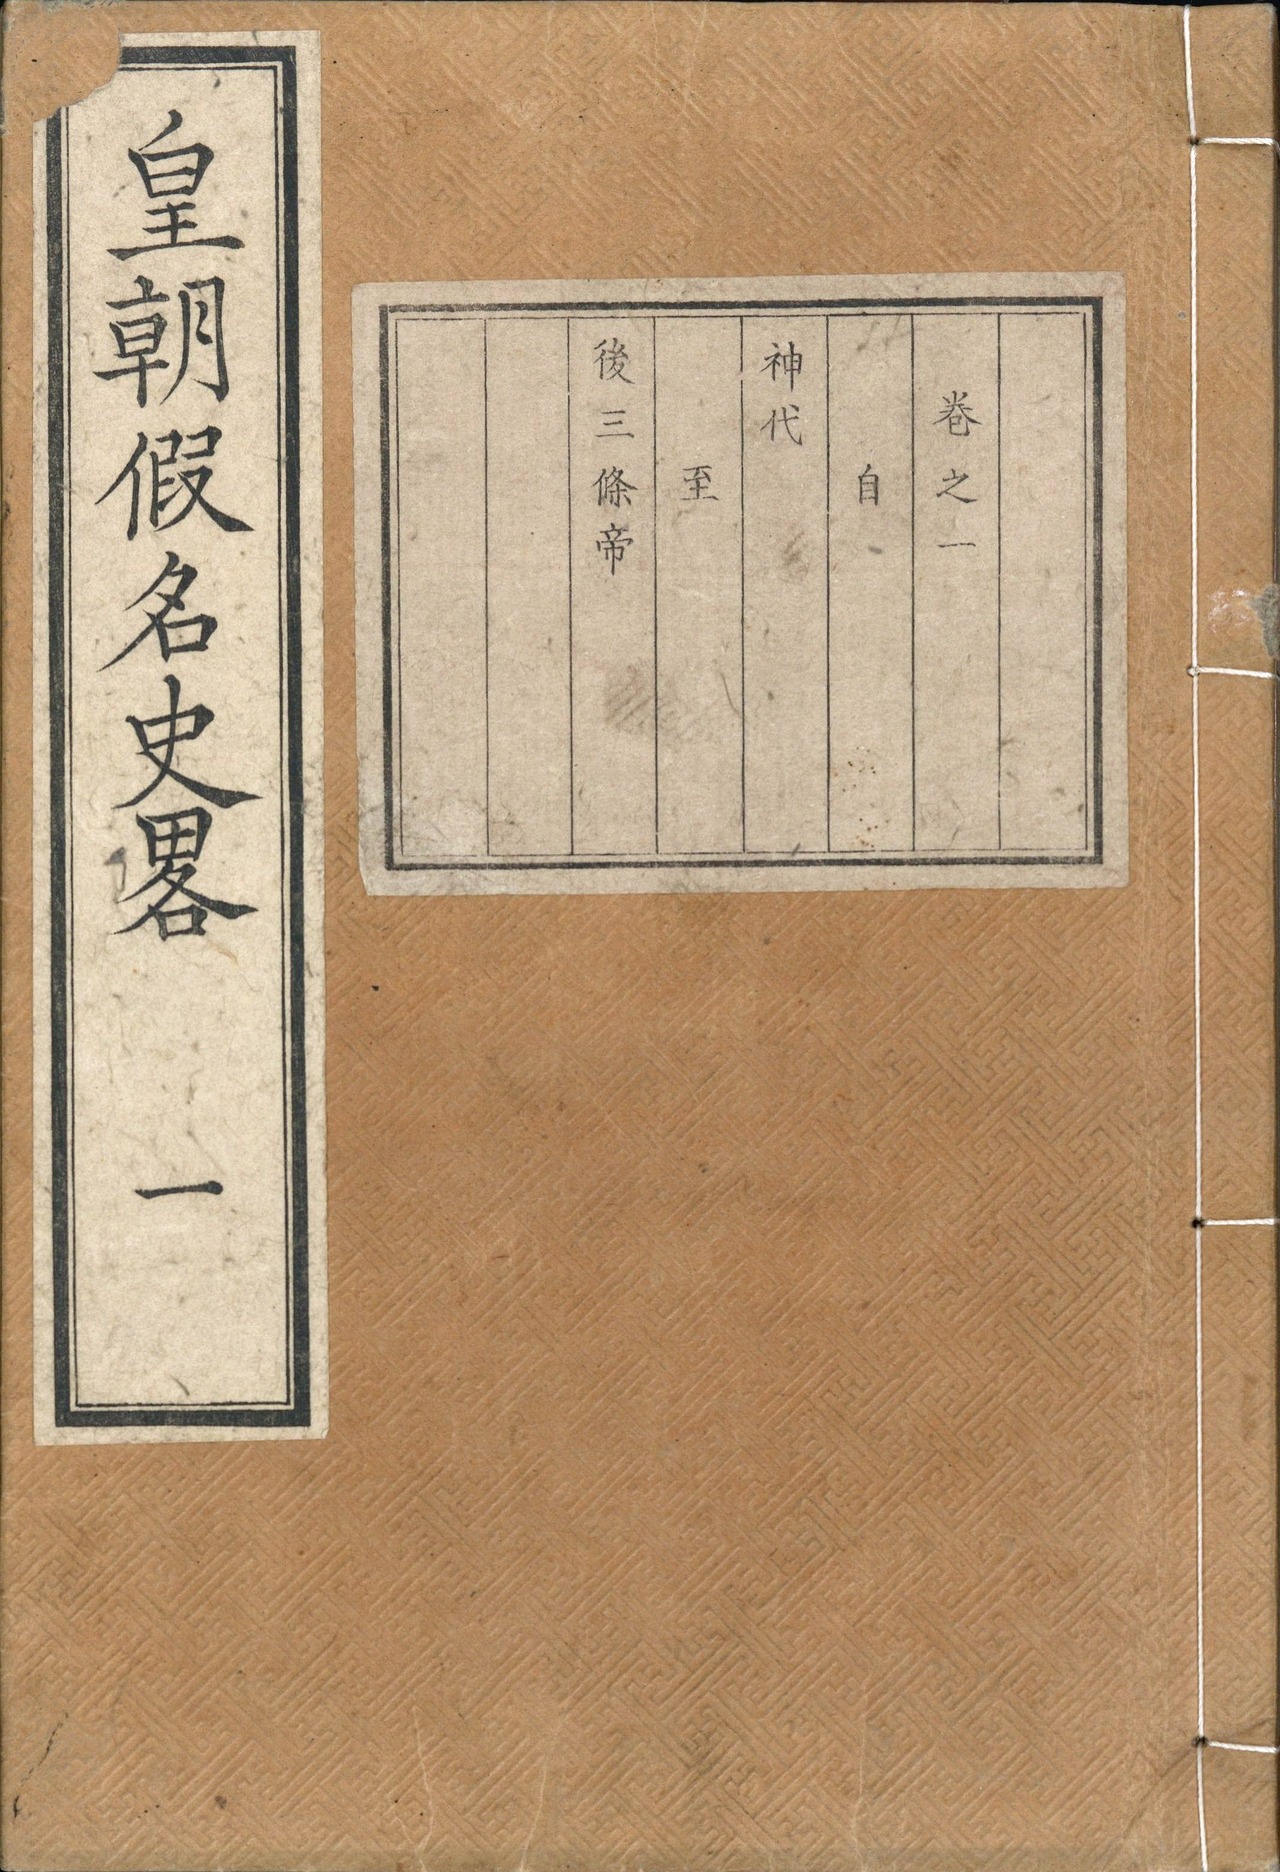 皇朝假名史畧 一
卷之一
自
神代
至
後三條帝